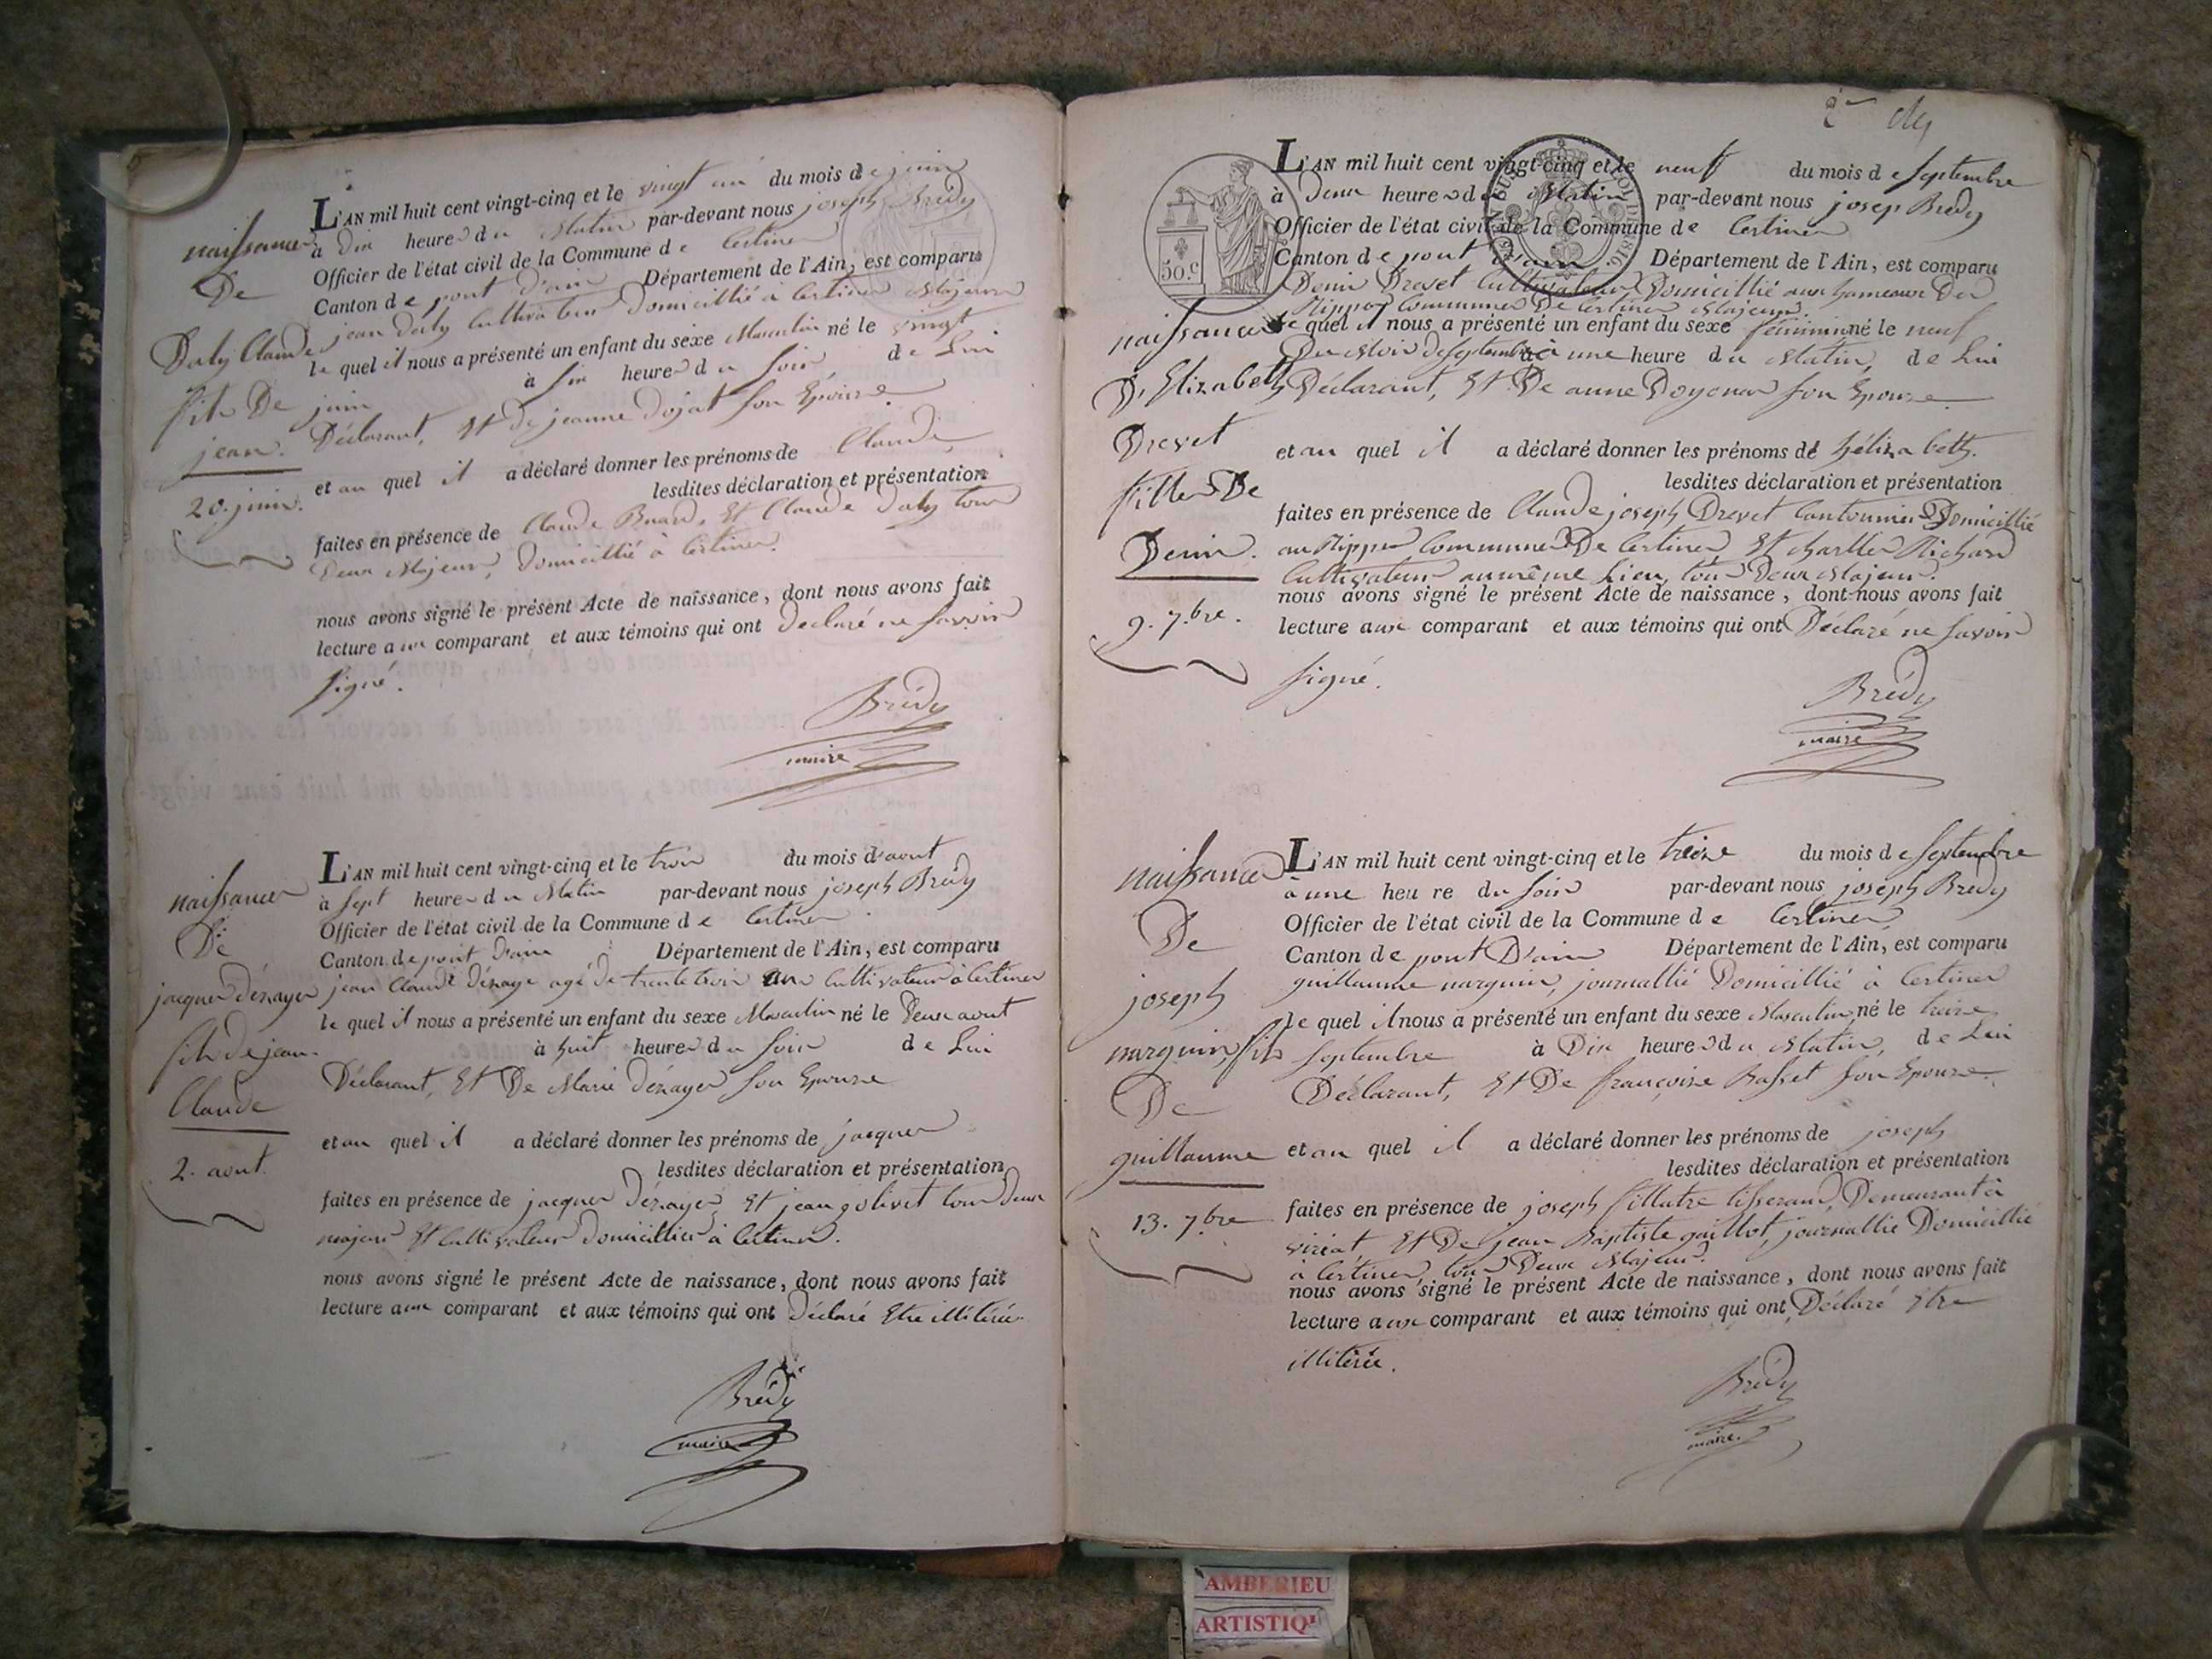 L'AN mil huit cent vingt-cinq et le vingt un du mois de juin
à Dix heures du Matin par-devant nous joseph Brédy
Officier de l'état civil de la Commune de Certines
Canton de pont d'ain Département de l'Ain, est comparu
jean Daly Cultivateur Domicillié à Certines Majeur
le quel il nous a présenté un enfant du sexe Masculin né le vingt
juin à six heures du soir de Lui
Déclarant, Et De jeanne Dojat son Epouse
et au quel il a déclaré donner les prénoms de Claude,
lesdites déclaration et présentation
faites en présence de Claude Buard, Et Claude Daly tous
Deux Majeurs, Domicillié à Certines.
nous avons signé le présent Acte de naissance, dont nous avons fait
lecture aux comparant et aux témoins qui ont Déclaré ne savoir
signé.
Brédy
maire
naissance
De
Daly Claude
fils De
jean.
20. juin.
L'AN mil huit cent vingt-cinq et le trois du mois d'aout
à sept heures du Matin par-devant nous joseph Brédy
Officier de l'état civil de la Commune de Certines
Canton de pont d'ain Département de l'Ain, est comparu
jean Claude Dénayer agé de trente trois ans Cultivateur à Certines
le quel il nous a présenté un enfant du sexe Masculin né le Deux aout
à huit heures du soir de Lui
Déclarant, Et De Marie Dénayer son Epouse
et au quel il a déclaré donner les prénoms de jacques
lesdites déclaration et présentation
faites en présence de jacques Dénayer Et jean golivet tous Deux
majeurs Et Cultivateurs Domicilliés à Certines.
nous avons signé le présent Acte de naissance, dont nous avons fait
lecture aux comparant et aux témoins qui ont Déclaré Etre illitérée
Brédy
maire
naissance
De
jacques Dénayer
fils de jean
Claude
2. aout.
2me
L'AN mil huit cent vingt-cinq et le neuf du mois de Septembre
à Deux heures du Matin par-devant nous josep Brédy
Officier de l'état civil de la Commune de Certines
Canton de pont d'ain Département de l'Ain, est comparu
Denis Drevet Cultivateur Domicillié aux hameaux Des
Rippes Commune De Certines Majeur.
le quel il nous a présenté un enfant du sexe féminin né le neuf
Du Mois De Septembre à une heure du Matin, de Lui
Déclarant, Et De anne Doyenar son Epouse
et au quel il a déclaré donner les prénoms de hélizabeth.
lesdites déclaration et présentation
faites en présence de Claude joseph Drevet Cantonnier Domicillié
au Rippes Commune De Certines Et charlles Richard
Cultivateur au même Lieu, tous Deux Majeur.
nous avons signé le présent Acte de naissance, dont nous avons fait
lecture aux comparant et aux témoins qui ont Déclaré ne savoir
signé.
Brédy
maire
50.c
naissance
D'Elizabeth
Drevet
fille De
Denis.
9. 7bre.
L'AN mil huit cent vingt-cinq et le treize du mois de Septembre
à une heure du soir par-devant nous joseph Brédy
Officier de l'état civil de la Commune de Certines
Canton de pont D'ain Département de l'Ain, est comparu
guillaume narguin, journallié Domicillié à Certines
le quel il nous a présenté un enfant du sexe Masculin, né le treize
septembre à Dix heures du Matin, de Lui
Déclarant, Et De françoise Basset son Epouse.
et au quel il a déclaré donner les prénoms de joseph
lesdites déclaration et présentation
faites en présence de joseph fillatre tisserand, Demeurant à
viriat, Et De jean Baptiste guillot, journallié Domicillié
à Certines, tous Deux Majeur.
nous avons signé le présent Acte de naissance, dont nous avons fait
lecture aux comparant et aux témoins qui ont Déclaré être
illitérée.
Brédy
maire.
naissance
De
joseph
narguin, fils
De
guillaume
13. 7bre
AMBERIEU
ARTISTIQ